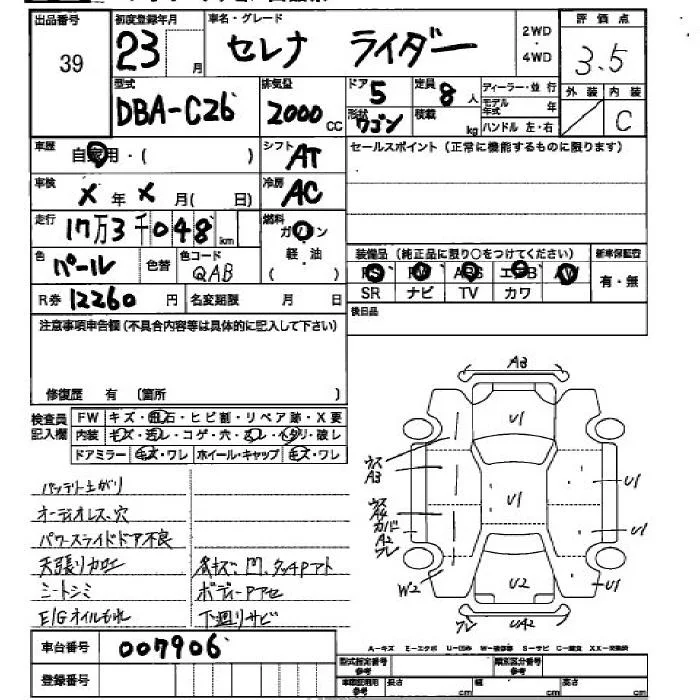 出品番号
39
初度登録年月
23 月
車名・グレード
セレナ ライダー
2WD
・
4WD
評価点
3.5
外装 内装
C
型式
DBA-C26
排気量
2000 CC
ドア 5
形状 ワゴン
定員 8 人
積載 kg
ディーラー・並行
モデル年式 年
ハンドル 左・右
車歴
自家用・( )
シフト AT
セールスポイント(正常に機能するものに限ります)
車検
X 年 X 月( 日)
冷房 AC
走行
17万3千048 km
燃料
ガソリン
軽油
( )
色 パール
色替
色コード
QAB
装備品(純正品に限り○をつけてください)
新車保証書
PS PW ABS エアB AW
SR ナビ TV カワ
有・無
R券 12260 円
名変期限 月 日
後日品
注意事項申告欄(不具合内容等は具体的に記入して下さい)
修復歴 有 (箇所 )
検査員記入欄
FW キズ・飛石・ヒビ割・リペア跡・X要
内装 キズ・汚レ・コゲ・穴・スレ・イタリ・破レ
ドアミラー キズ・ワレ ホイール・キャップ キズ・ワレ
バッテリー上がり
オーディオレス、穴
パワースライドドア不良
天張りカロン
シートシミ
E/Gオイルもれ
各キズ凹、タッチPアト
ボディーPアセ
下廻りサビ
A3
U1
ウス
A3
U1
U1
ウス
A4
カバー
A2
ワレ
W2
U2
U1
ワレ
UA2
車台番号
007906
登録番号
A-キズ E-エクボ U-凹み W-補修跡 S-サビ C-腐食 XX-交換済
型式指定番号
参考
類別区分番号
参考
長さ cm
幅 cm
高さ cm